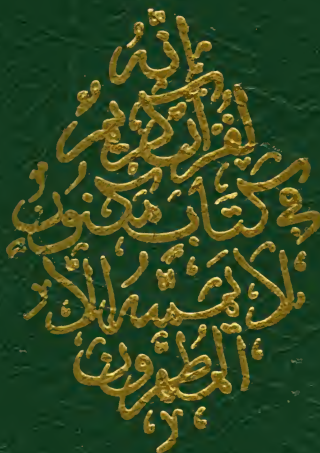 إنه
لقرآن كريم
في كتاب مكنون
لا يمسه إلا
المطهرون